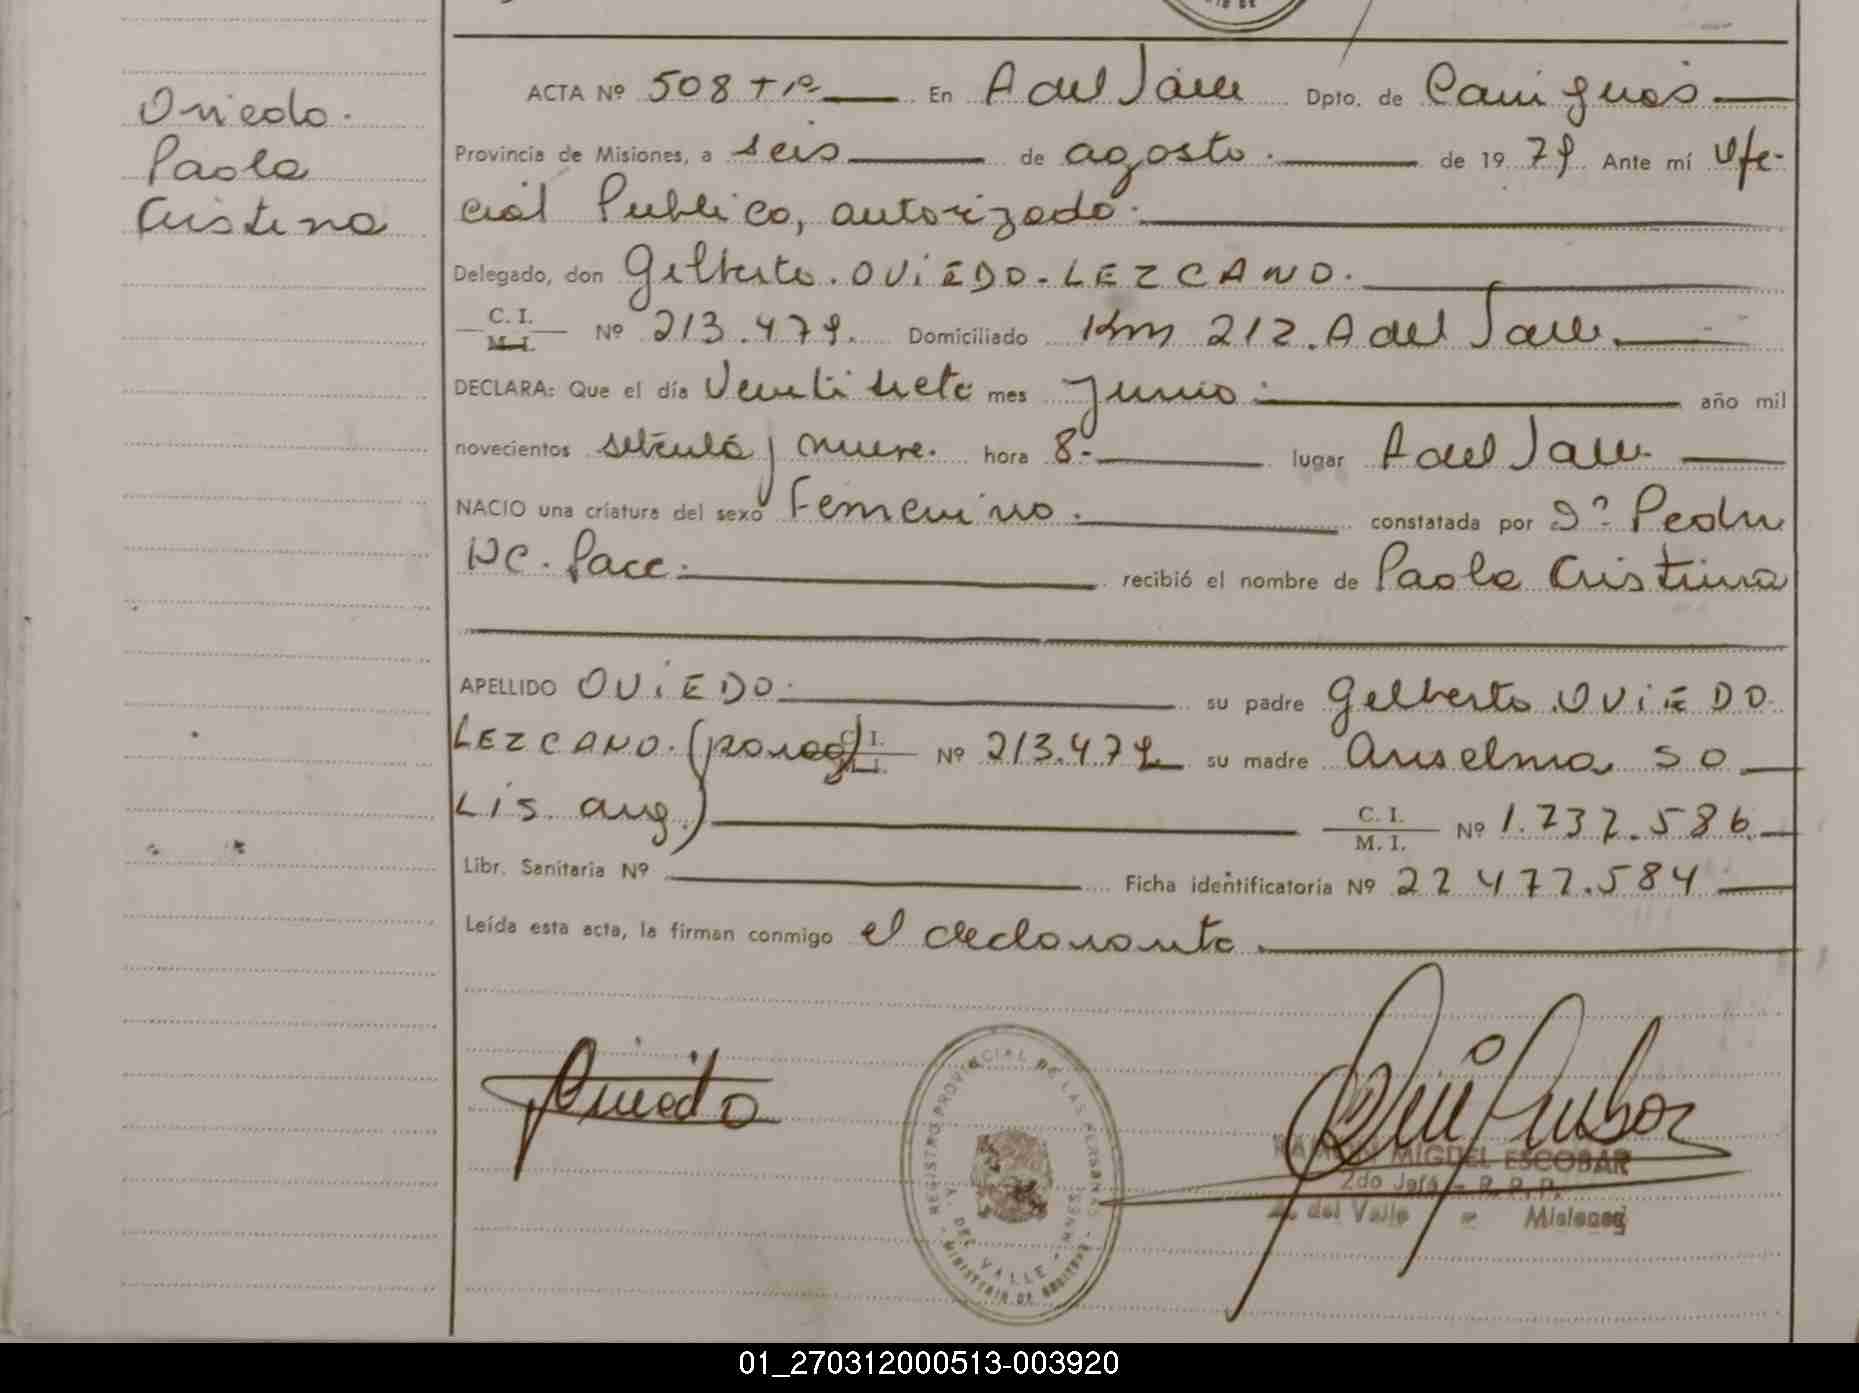 Oviedo.
Paola
Cristina
ACTA Nº 508 T 1º En A del Valle Dpto. de Cainguás
Provincia de Misiones, a seis de agosto. de 19 79 Ante mí Ofi-
cial Publico, autorizado.
Delegado, don Gilberto. OVIEDO-LEZCANO.
C. I.
M. I. Nº 213.479. Domiciliado Km 212. A del Valle.
DECLARA: Que el día Veinti siete mes Junio. año mil
novecientos setenta y nueve. hora 8.- lugar A del Valle
NACIO una criatura del sexo Femenino. constatada por Dº. Pedro
DC. Pace. recibió el nombre de Paola Cristina
APELLIDO OVIEDO. su padre Gilberto OVIEDO
LEZCANO. (parag) C. I. Nº 213.479 su madre Anselma SO
LIS. arg.) C. I.
M. I. Nº 1.737.586
Libr. Sanitaria Nº Ficha identificatoria Nº 27 477.584
Leída esta acta, la firman conmigo el declarante.
Oviedo
REGISTRO PROVINCIAL DE LAS PERSONAS
A. DEL VALLE - MNES.
MINISTERIO DE GOBIERNO
RAMON MIGUEL ESCOBAR
2do Jefe - R. P. P.
A. del Valle - Misiones
01_270312000513-003920